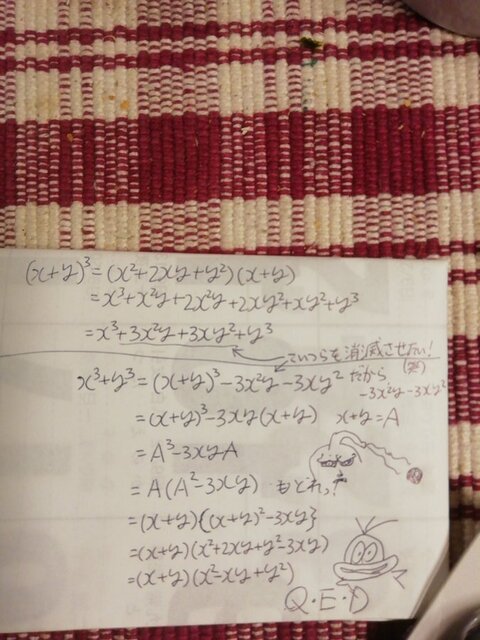 (x+y)³=(x²+2xy+y²)(x+y)
=x³+x²y+2x²y+2xy²+xy²+y³
=x³+3x²y+3xy²+y³
こいつらを消滅させたい!
(笑)
x³+y³=(x+y)³-3x²y-3xy² だから
-3x²y-3xy²
=(x+y)³-3xy(x+y) x+y=A
=A³-3xyA
=A(A²-3xy) もどれっ!
=(x+y){(x+y)²-3xy}
=(x+y)(x²+2xy+y²-3xy)
=(x+y)(x²-xy+y²)
Q・E・D